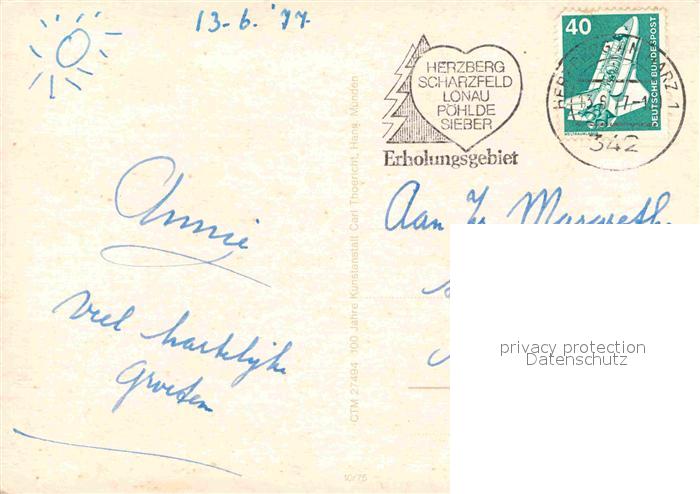 13-6-'77
40
DEUTSCHE BUNDESPOST
HERZBERG
SCHARZFELD
LONAU
PÖHLDE
SIEBER
Erholungsgebiet
HERZBERG AM HARZ 1
13.6.77-1
342
Annie
Veel hartelijke
Groeten
Aan Zr Margreth
CTM 27494 100 Jahre Kunstanstalt Carl Thoericht, Hann. Münden
10/75
privacy protection
Datenschutz